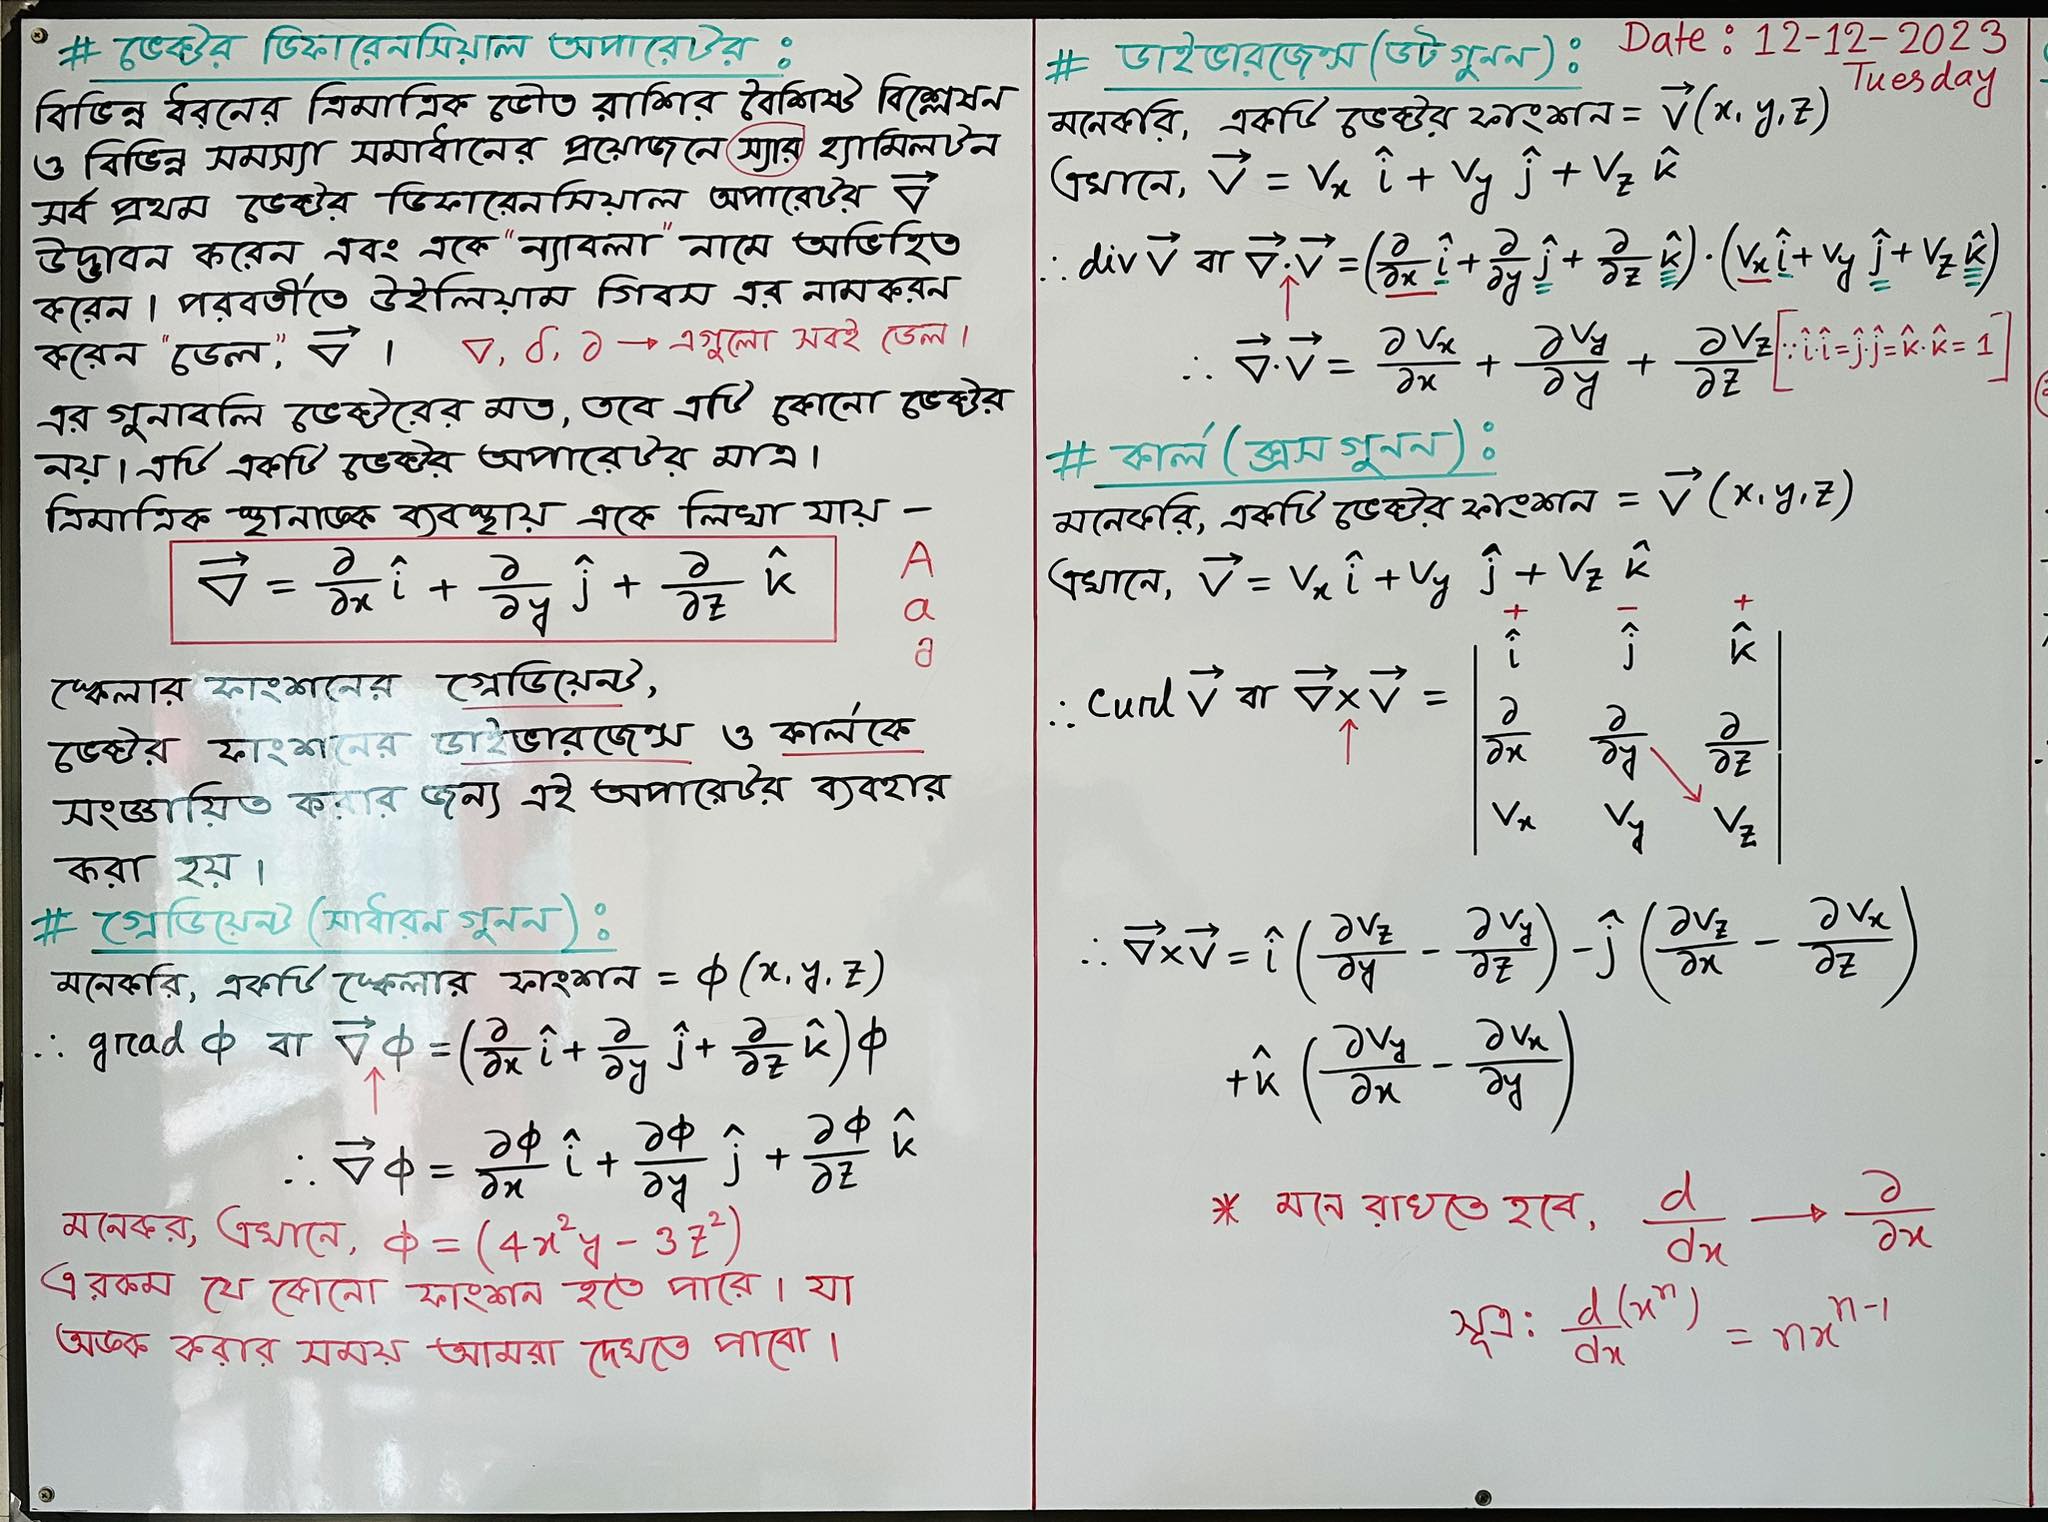 # ভেক্টর ডিফারেনসিয়াল অপারেটর :
বিভিন্ন ধরনের ত্রিমাত্রিক ভৌত রাশির বৈশিষ্ট বিশ্লেষন
ও বিভিন্ন সমস্যা সমাধানের প্রয়োজনে স্যার হ্যামিলটন
সর্ব প্রথম ভেক্টর ডিফারেনসিয়াল অপারেটর \vec{∇}
উদ্ভাবন করেন এবং একে "ন্যাবলা" নামে অভিহিত
করেন। পরবর্তীতে উইলিয়াম গিবস এর নামকরন
করেন "ডেল", \vec{∇} । ∇, δ, ∂ → এগুলো সবই ডেল।
এর গুনাবলি ভেক্টরের মত, তবে এটি কোনো ভেক্টর
নয়। এটি একটি ভেক্টর অপারেটর মাত্র।
ত্রিমাত্রিক স্থানাঙ্ক ব্যবস্থায় একে লিখা যায় -
\vec{∇} = ∂/∂x î + ∂/∂y ĵ + ∂/∂z k̂
A
a
a
স্কেলার ফাংশনের গ্রেডিয়েন্ট,
ভেক্টর ফাংশনের ডাইভারজেন্স ও কার্লকে
সংজ্ঞায়িত করার জন্য এই অপারেটর ব্যবহার
করা হয়।
# গ্রেডিয়েন্ট (সাধারন গুনন) :
মনেকরি, একটি স্কেলার ফাংশন = φ(x, y, z)
∴ grad φ বা \vec{∇}φ = (∂/∂x î + ∂/∂y ĵ + ∂/∂z k̂)φ
↑
∴ \vec{∇}φ = ∂φ/∂x î + ∂φ/∂y ĵ + ∂φ/∂z k̂
মনেকর, এখানে, φ = (4x²y - 3z²)
এরকম যে কোনো ফাংশন হতে পারে। যা
অঙ্ক করার সময় আমরা দেখতে পাবো।
Date : 12-12-2023
Tuesday
# ডাইভারজেন্স (ডট গুনন) :
মনেকরি, একটি ভেক্টর ফাংশন = \vec{V}(x, y, z)
এখানে, \vec{V} = Vx î + Vy ĵ + Vz k̂
∴ div \vec{V} বা \vec{∇}·\vec{V} = (∂/∂x î + ∂/∂y ĵ + ∂/∂z k̂)·(Vx î + Vy ĵ + Vz k̂)
↑
∴ \vec{∇}·\vec{V} = ∂Vx/∂x + ∂Vy/∂y + ∂Vz/∂z [∵ î·î = ĵ·ĵ = k̂·k̂ = 1]
# কার্ল (ক্রস গুনন) :
মনেকরি, একটি ভেক্টর ফাংশন = \vec{V}(x, y, z)
এখানে, \vec{V} = Vx î + Vy ĵ + Vz k̂
+ - +
î ĵ k̂
∴ curl \vec{V} বা \vec{∇}×\vec{V} = ∂/∂x ∂/∂y ∂/∂z
↑
Vx Vy Vz
∴ \vec{∇}×\vec{V} = î (∂Vz/∂y - ∂Vy/∂z) - ĵ (∂Vz/∂x - ∂Vx/∂z)
+ k̂ (∂Vy/∂x - ∂Vx/∂y)
* মনে রাখতে হবে, d/dx → ∂/∂x
সূত্র: d(xⁿ)/dx = nxⁿ⁻¹